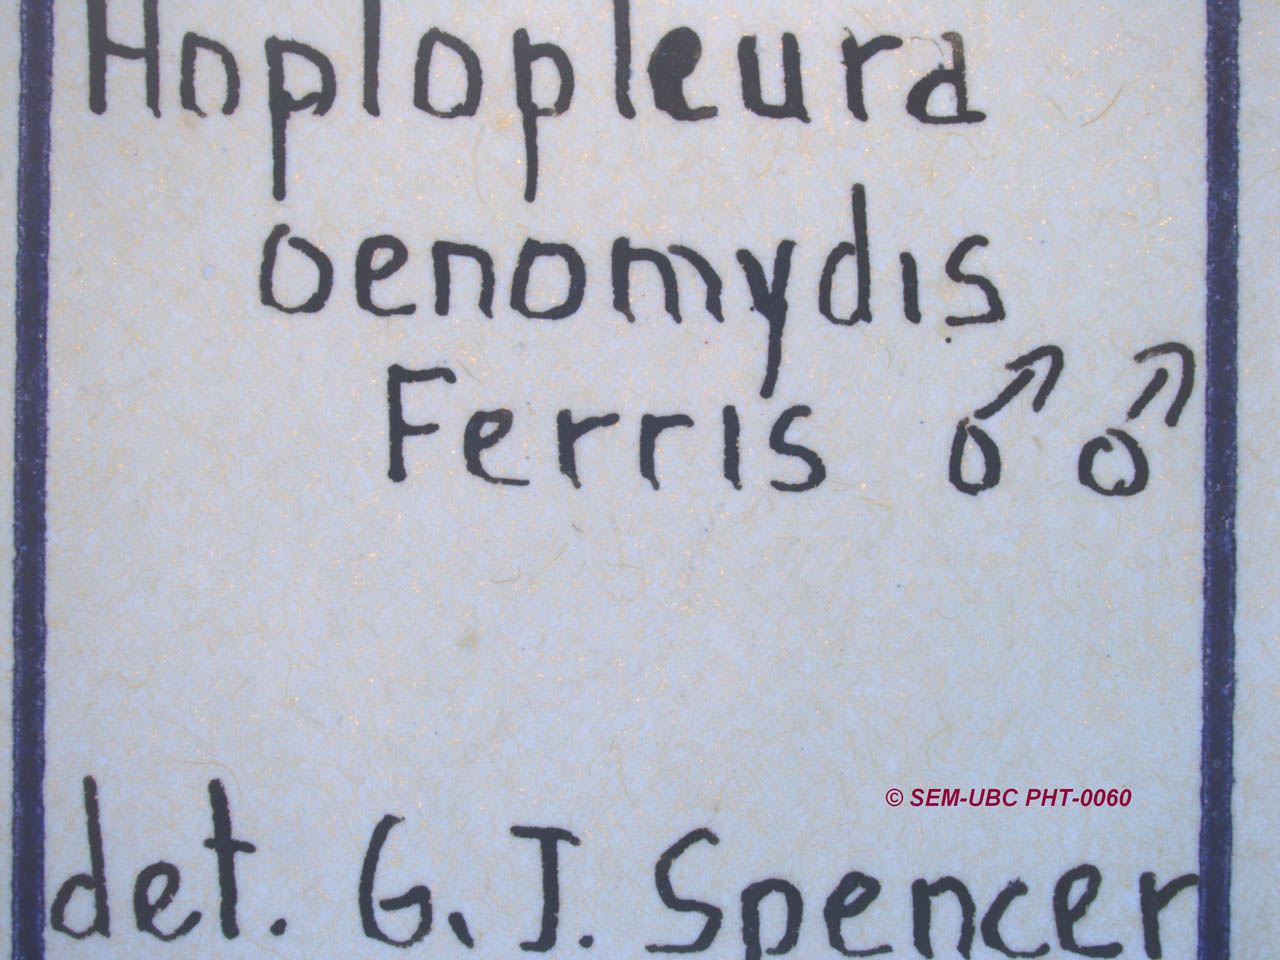 Hoplopleura
oenomydis
Ferris ♂ ♂
© SEM-UBC PHT-0060
det. G. J. Spencer